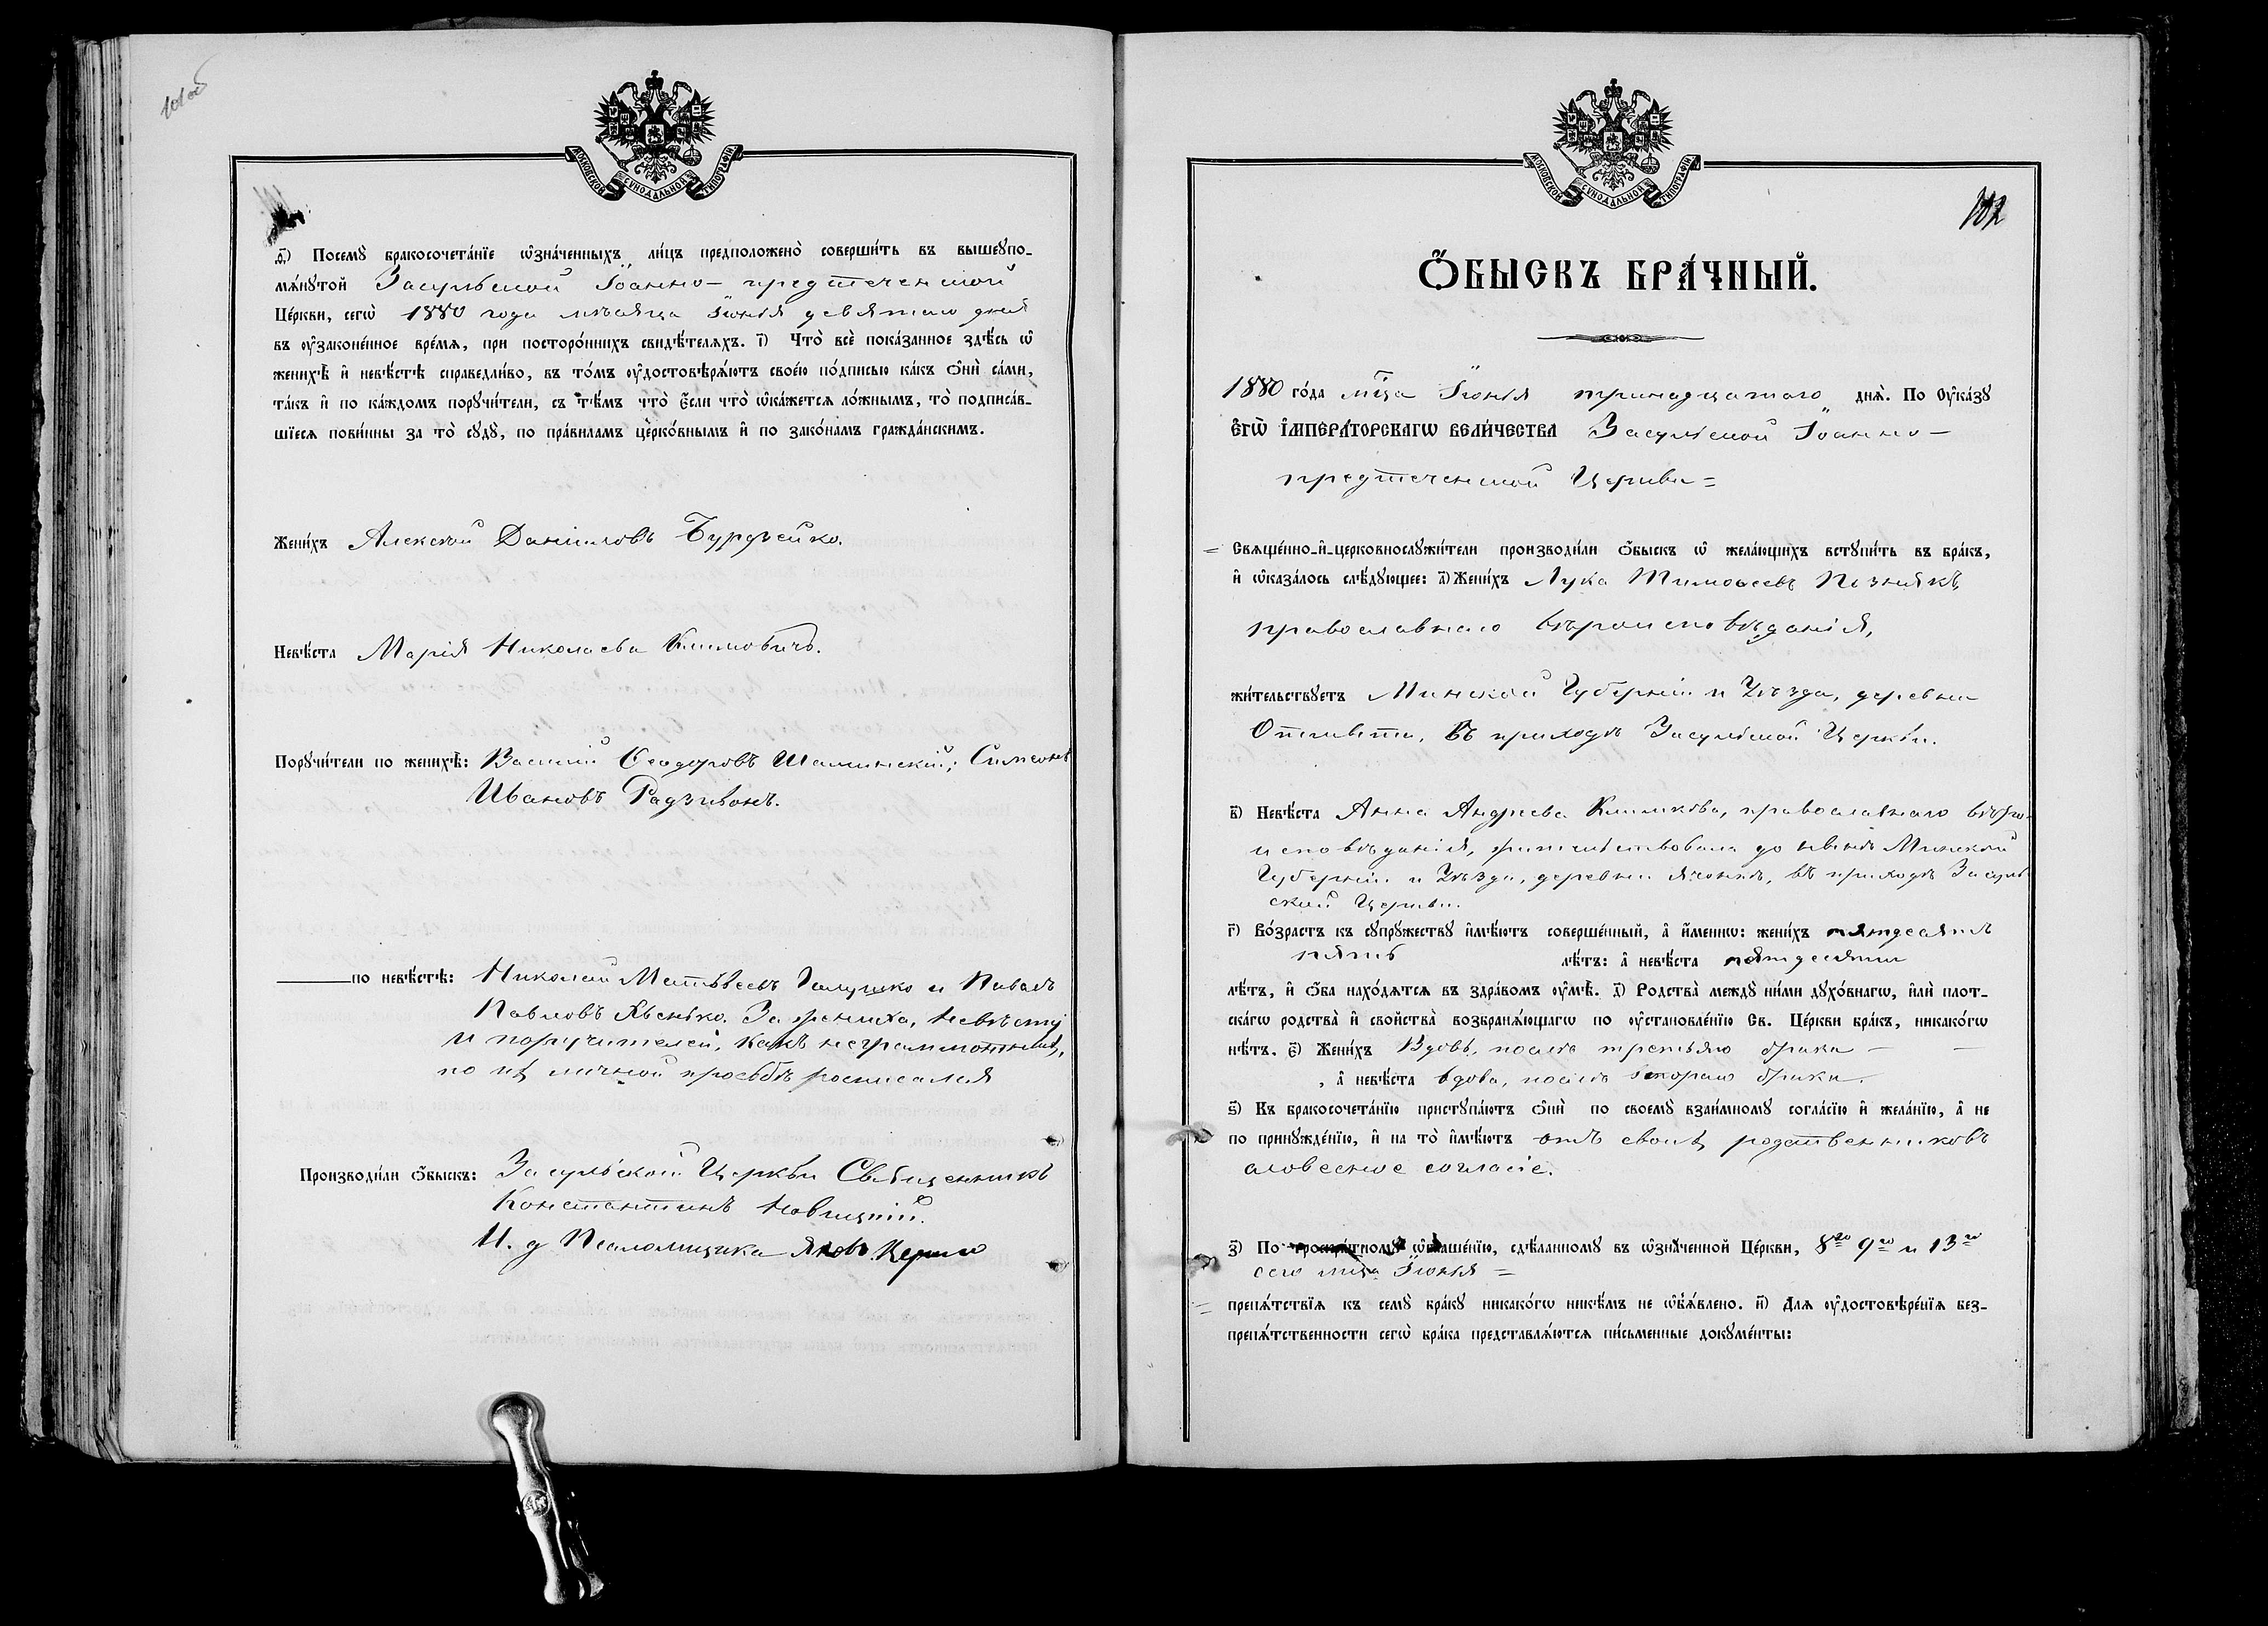 101 об
МОСКОВСКОЙ СѴНОДАЛЬНОЙ ТИПОГРАФІИ
ѳ҃) Посемꙋ̀ бракосочета́нїе ѡ҆зна́ченныхъ ли́цъ предположено̀ соверши́ть въ вышеꙋпо-
мѧ́нꙋтой Засульской Іоанно-предтеченской
Це́ркви, сегѡ̀ 1880 года мѣсяца Іюня девятаго дня
въ ᲂу҆законе́нное вре́мѧ, при посторо́ннихъ свидѣ́телѧхъ. і҃) Что̀ всѐ пока́занное здѣ́сь ѡ҆
женихѣ̀ и҆ невѣ́стѣ справедли́во, въ то́мъ ᲂу҆достовѣрѧ́ютъ свое́ю по́дписью ка́къ ѻ҆нѝ са́ми,
та́къ и҆ по ка́ждомъ порꙋчи́тели, съ тѣ́мъ что̀ є҆́сли что̀ ѡ҆ка́жетсѧ ло́жнымъ, то̀ подписа́в-
шїесѧ пови́нны за то̀ сꙋдꙋ̀, по пра́виламъ цѐрко́внымъ и҆ по зако́намъ гражда́нскимъ.
Жени́хъ Алексѣй Даніиловъ Бурдзейко.
Невѣ́ста Марія Николаева Климовичъ.
Порꙋчи́тели по женихѣ̀: Василій Ѳеодоровъ Шаминскій; Симеонъ
Ивановъ Радзивонъ.
по невѣ́стѣ: Николай Матѳеевъ Галушко и Павелъ
Павловъ Явсенько. За жениха, невѣсту
и поручителей, какъ неграммотныхъ,
по ихъ личной просьбѣ росписался
Производи́ли ѻ҆́быскъ: Засульской Церкви Священникъ
Константинъ Новицкій.
И. д Псаломщика Яковъ
102
МОСКОВСКОЙ СѴНОДАЛЬНОЙ ТИПОГРАФІИ
Ѻ҆́БЫСКЪ БРА́ЧНЫЙ.
1880 го́да мц҃а Іюня тринадцатаго днѧ̀. По Оу҆ка́зꙋ
Є҆ГѠ̀ І҆МПЕРА́ТОРСКАГѠ ВЕЛИ́ЧЕСТВА Засульской Іоанно-
предтеченской Церкви=
Свѧще́нно-и҆-церковнослꙋжи́тели производи́ли ѻ҆́быскъ ѡ҆ жела́ющихъ встꙋпи́ть въ бра́къ,
и҆ ѡ҆каза́лось слѣ́дꙋющее: а҃) Жени́хъ Лука Тимоѳеевъ Познякъ,
православнаго вѣроисповѣданія,
жи́тельствꙋетъ Минской Губерніи и Уѣзда, деревни
въ приходѣ Засульской Церкви.
в҃) Невѣ́ста Анна Андреева Климкова, православнаго вѣро-
исповѣданія, жительствовала до нынѣ Минской
Губерніи и Уѣзда, деревни Ячонкѣ, въ приходѣ Засуль
ской Церкви.
г҃) Во́зрастъ къ сꙋпрꙋ́жествꙋ и҆мѣ́ютъ соверше́нный, а҆ и҆́менно: жени́хъ пятдесятъ
пять лѣ́тъ: а҆ невѣ́ста пятдесяти
лѣ́тъ, и҆ ѻ҆́ба нахо́дѧтсѧ въ здра́вомъ ᲂу҆мѣ̀. д҃) Родства̀ междꙋ ни́ми дꙋхо́внагѡ, и҆лѝ плот-
ска́гѡ родства̀ и҆ сво́йства возбранѧ́ющагѡ по ᲂу҆становле́нїю Св. Це́ркви бра́къ, никако́гѡ
нѣ́тъ. є҃) Жени́хъ Вдовъ, послѣ третьяго брака —
, а҆ невѣ́ста вдова, послѣ втораго брака.
ѕ҃) Къ бракосочета́нїю пристꙋпа́ютъ ѻ҆нѝ по своемꙋ̀ взаи́мномꙋ согла́сїю и҆ жела́нїю, а҆ не
по принꙋжде́нїю, и҆ на то̀ и҆мѣ́ютъ отъ своихъ родственниковъ
словесное согласіе.
з҃) По троекра́тномꙋ ѡ҆глаше́нїю, сдѣ́ланномꙋ въ ѡ҆зна́ченной Це́ркви, 8го 9го и 13го
сего мца Іюня =
препѧ́тствїѧ къ семꙋ̀ бра́кꙋ никако́гѡ никѣ́мъ не ѡ҆б̾ѧ́влено. и҃) Длѧ ᲂу҆достовѣре́нїѧ без-
препѧ́тственности сегѡ̀ бра́ка представлѧ́ютсѧ пи́сьменные докꙋме́нты: